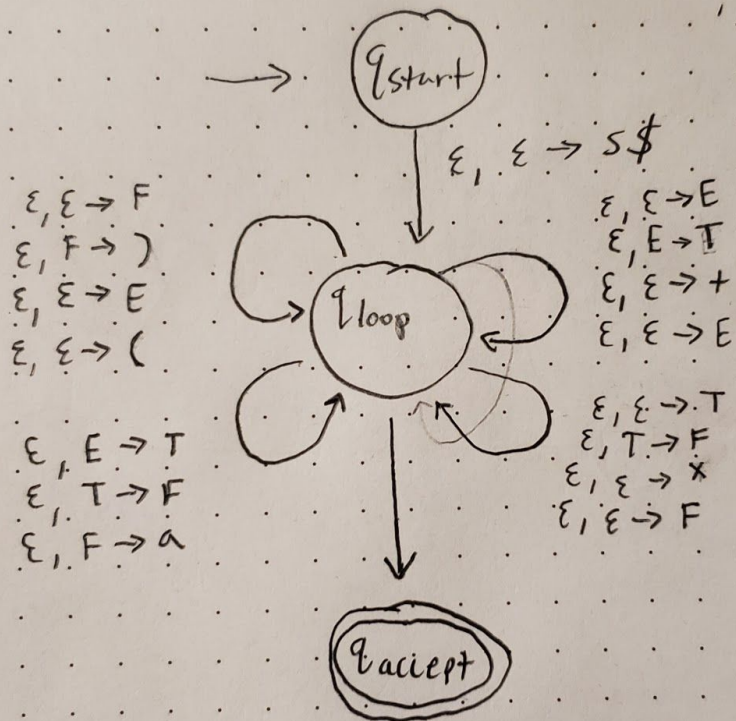 qstart
ε, ε → S$
ε, ε → F
ε, F → )
ε, ε → E
ε, ε → (
qloop
ε, ε → E
ε, E → T
ε, ε → +
ε, ε → E
ε, E → T
ε, T → F
ε, F → a
ε, ε → T
ε, T → F
ε, ε → x
ε, ε → F
qaccept